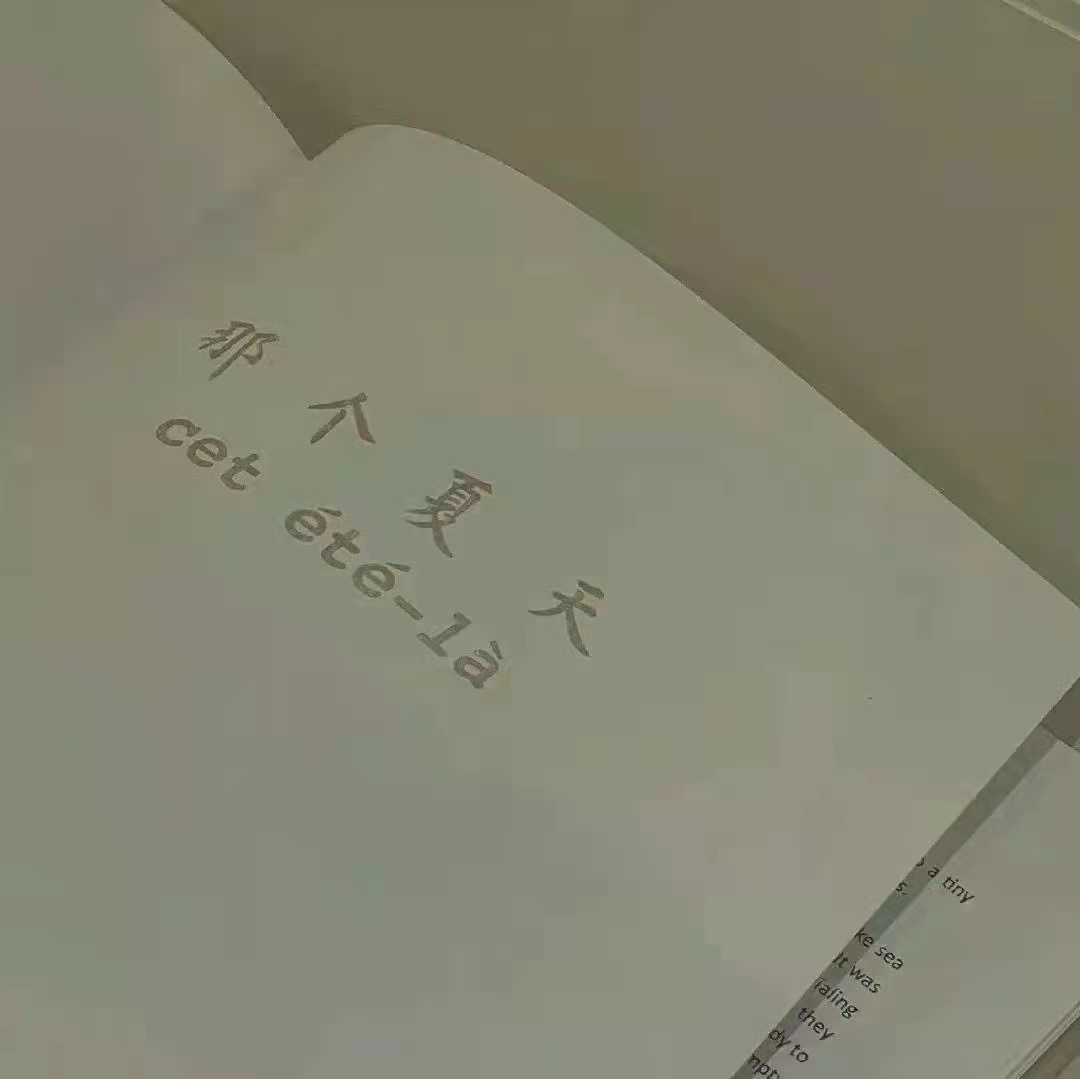 那个夏天
cet été-là
a tiny
s.
ke sea
It was
they
dy to